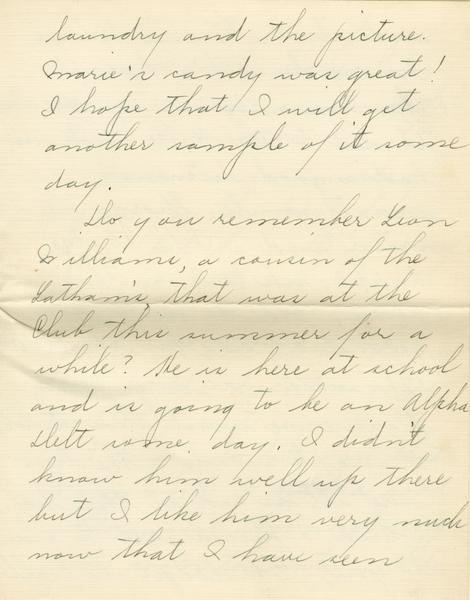 laundry and the picture.
Marie's candy was great!
I hope that I will get
another sample of it some
day.
Do you remember Leon
Williams, a cousin of the
Latham's, that was at the
Club this summer for a
while? He is here at school
and is going to be an Alpha
Delt some day. I didn't
know him well up there
but I like him very much
now that I have seen